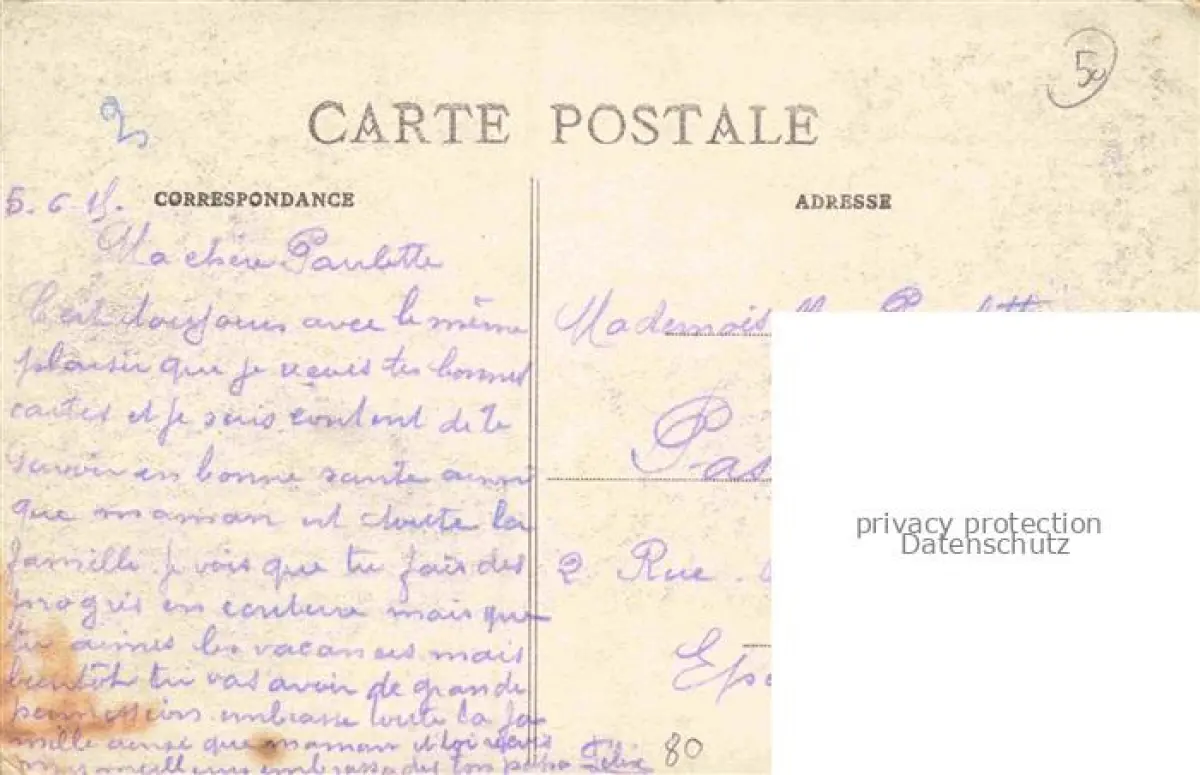 50
CARTE POSTALE
5.6.15. CORRESPONDANCE
ADRESSE
Ma chère Paulette
C'est toujours avec le même
plaisir que je reçois tes bonnes
cartes et je suis content de te
savoir en bonne santé ainsi
que maman et toute la
famille. Je vois que tu fais des
progrès en couture mais que
tu aimes les vacances mais
bientôt tu vas avoir de grande
embrasse toute la fa
mille ainsi que maman et toi reçois
meilleures embrassades ton papa Félix
Mademoiselle
Pas
2 Rue
Epe
80
privacy protection
Datenschutz